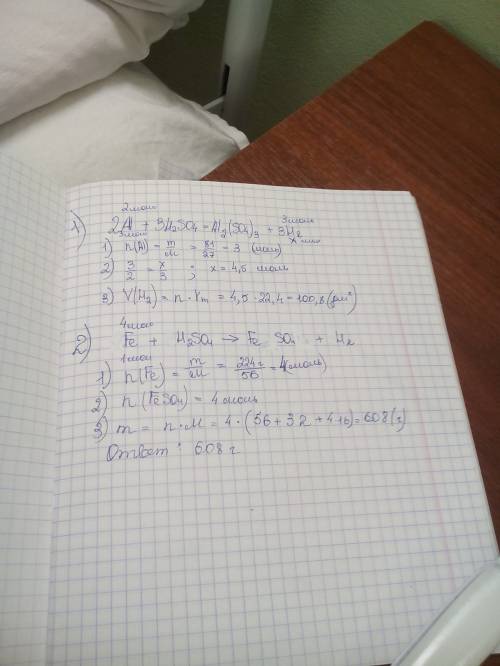 1)
2моль 3моль
2Al + 3H₂SO₄ = Al₂(SO₄)₃ + 3H₂
3моль x моль
1) n(Al) = m/M = 81/27 = 3 (моль)
2) 3/2 = x/3 ; x = 4,5 моль
3) V(H₂) = n · Vm = 4,5 · 22,4 = 100,8 (дм³)
2)
4моль
Fe + H₂SO₄ → FeSO₄ + H₂
1моль
1) n(Fe) = m/M = 224г/56 = 4(моль)
2) n(FeSO₄) = 4 моль
3) m = n·M = 4·(56+32+4·16) = 608(г)
Ответ: 608 г